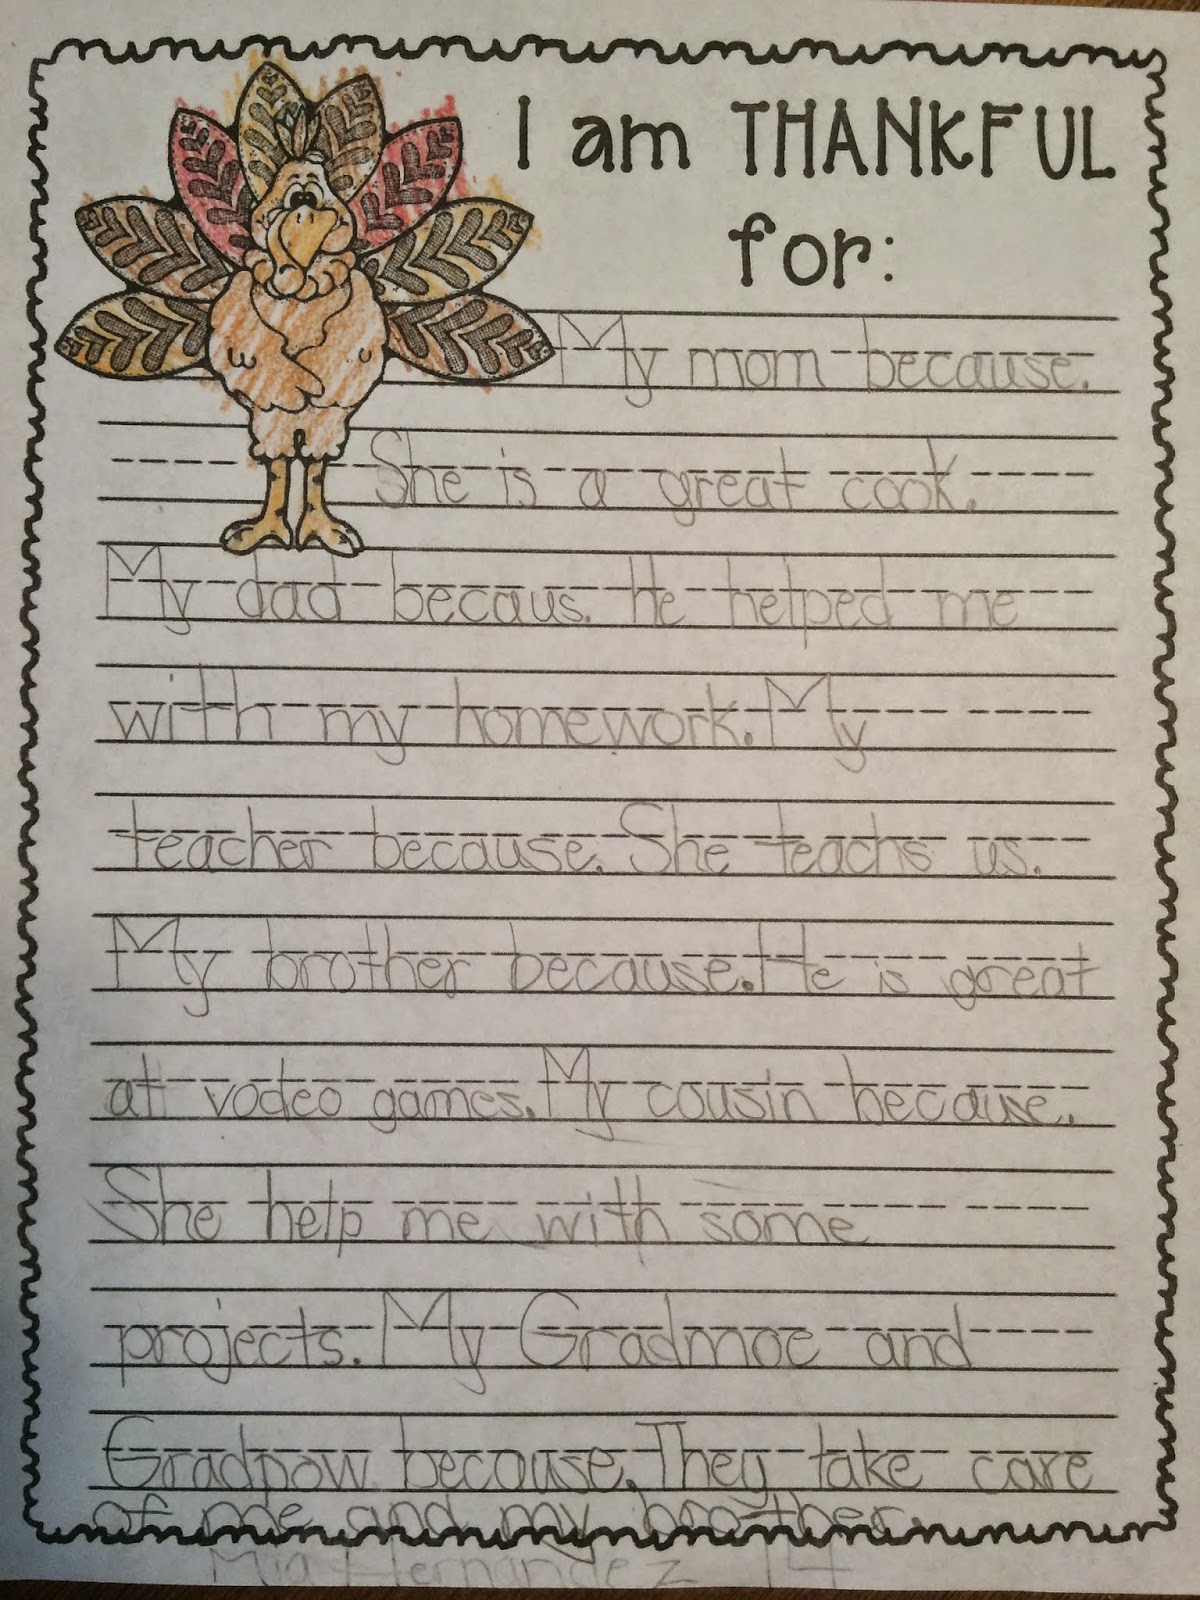 I am THANKFUL
for:
My mom because.
She is a great cook.
My dad becaus. He helped me
with my homework. My
teacher because. She teachs us.
My brother because. He is great
at vodeo games. My cousin because.
She help me with some
projects. My Gradmoe and
Gradpow because. They take care
of me and my brother.
Mia Hernandez 14